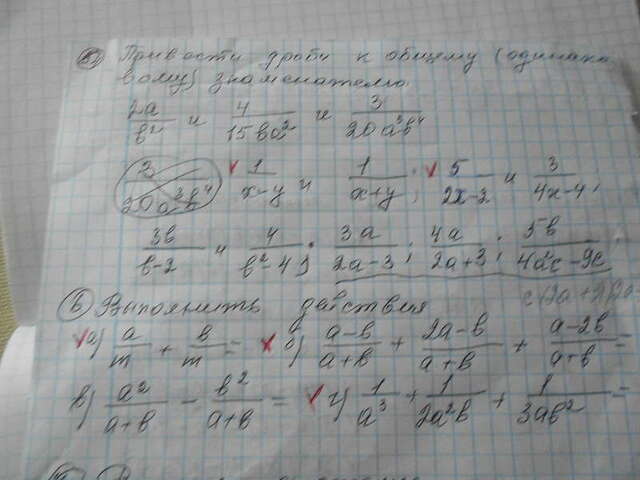 5) Привести дроби к общему (одинако
вому) знаменателю
2a/b² и 4/15ba² и 3/20a³b⁴
3/20a³b⁴ v 1/x-y и 1/x+y ; v 5/2x-2 и 3/4x-4 ;
3b/b-2 и 4/b²-4 ; 3a/2a-3 ; 4a/2a+3 ; 5b/4a²c-9c
6) Выполнить действия
v а) a/m + b/m = x б) a-b/a+b + 2a-b/a+b + a-2b/a+b =
в) a²/a+b - b²/a+b = v г) 1/a³ + 1/2a²b + 1/3ab² =